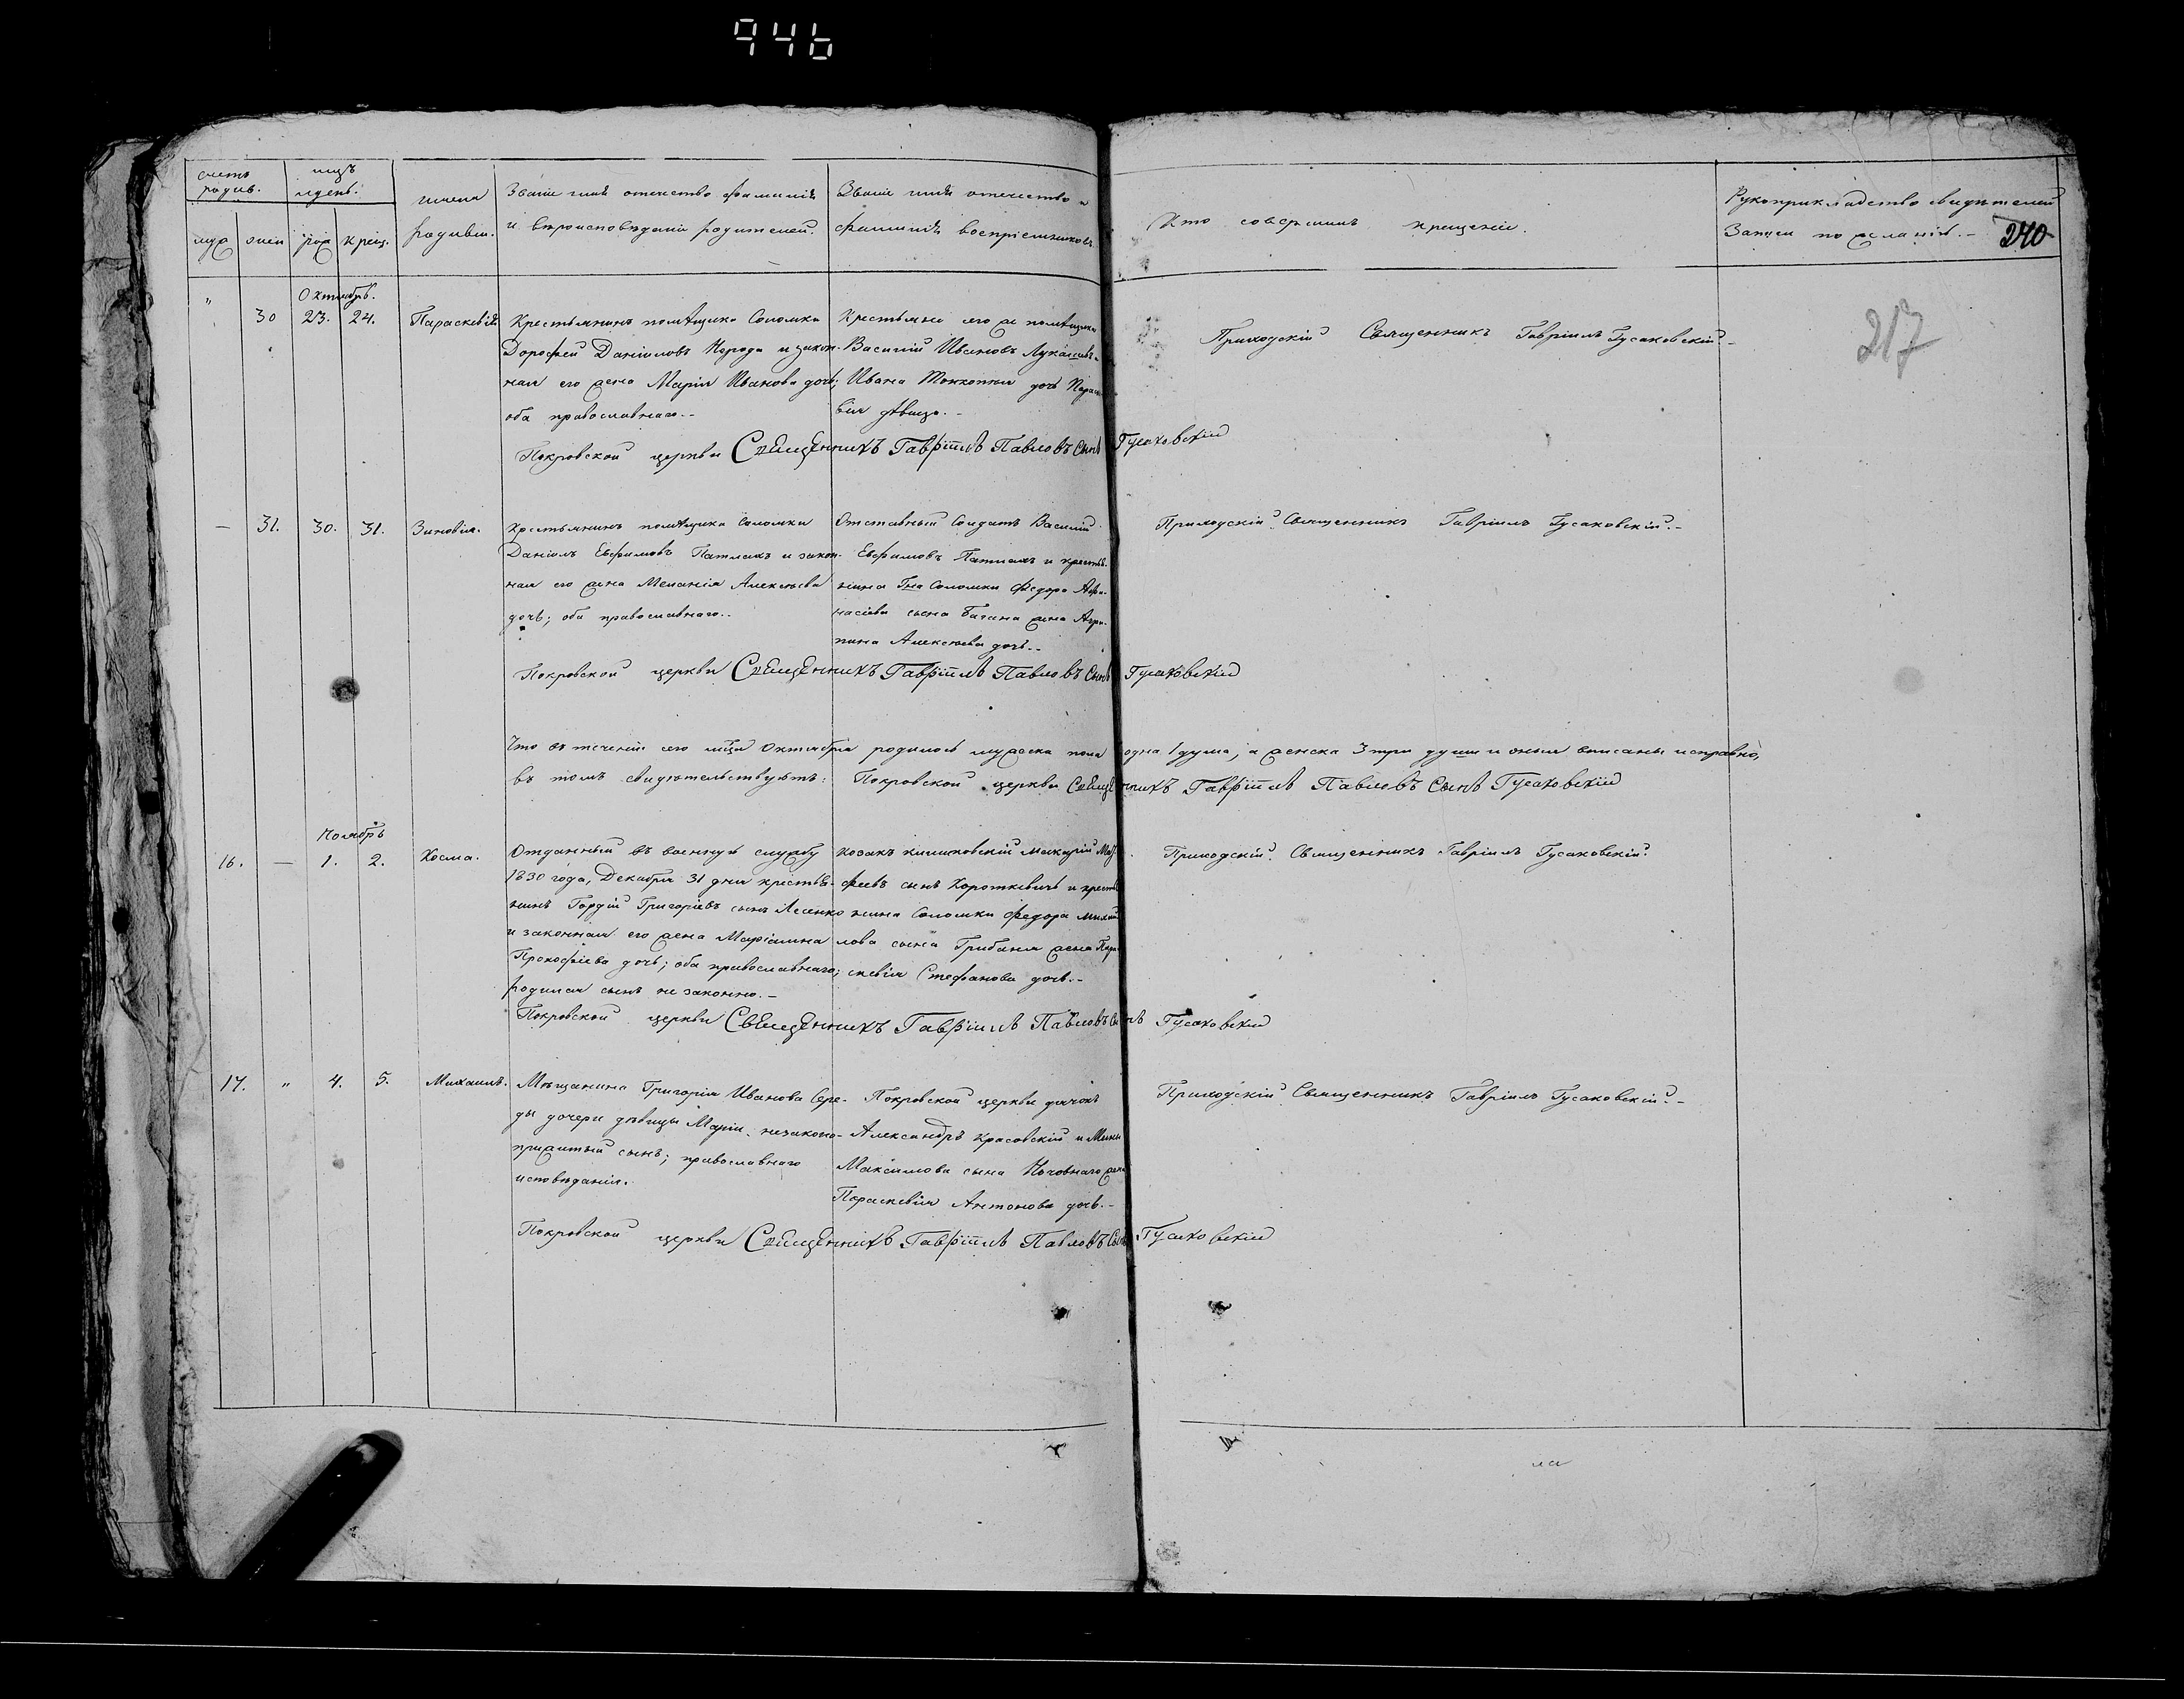 946
счетъ родив.
мцъ и день.
имена родивш.
Званіе имя отечество фамилія
и вѣроисповѣданіе родителей.
Званіе имя отечество и
фамилія воспріемниковъ.
Кто совершилъ крещеніе.
Рукоприкладство свидѣтелей
Записи по желанію.-
240
муж женс рож крещ.
Октябрь.
217
" 30 23. 24. Параскевія
Крестьянинъ помѣщика Соломки
Дорофей Даніиловъ Норода и закон-
ная его жена Марія Иванова дочь;
оба православнаго.-
Крестьяне его же помѣщика
Василій Ивановъ
Ивана дочь Парас
вія дѣвица.-
Приходскій Священникъ Гавріилъ Гусаковскій.-
Покровской церкви Священникъ Гавріилъ Павловъ Сынъ Гусаковскій
— 31. 30. 31. Зиновія.
Крестьянинъ помѣщика Соломки
Даніилъ Евфимовъ Патлахъ и закон-
ная его жена Меланія Алексѣева
дочь; оба православнаго.-
Отставный Солдатъ Василій
Евфимовъ Патлахъ и крестья-
нина Гна Соломки Федора Афа-
насіева сына жена Агри-
пина Алексѣева дочь.-
Приходскій Священникъ Гавріилъ Гусаковскій.-
Покровской церкви Священникъ Гавріилъ Павловъ Сынъ Гусаковскій
Что въ теченіи сего мца Октября родилось мужеска пола одна 1 душа, а женска 3 три души и оныя вписаны исправно,
въ томъ свидѣтельствуетъ: Покровской церкви Священникъ Гавріилъ Павловъ Сынъ Гусаковскій
Ноябрь
16. — 1. 2. Косма.
Отданный въ военную службу
1830 года, Декабря 31 дня крестья-
нинъ Гордій Григоріевъ сынъ Лесенко
и законная его жена Маріамна
Прокофіева дочь; оба православнаго;
родился сынъ не законно.-
Козакъ Климовскій Макарій Мат-
феевъ сынъ Короткевичъ и крестья
нина Соломки Федора Михаи
лова сына Грибаня жена Пара-
скевія Стефанова дочь.-
Приходскій Священникъ Гавріилъ Гусаковскій.
Покровской церкви Священникъ Гавріилъ Павловъ Сынъ Гусаковскій
17. " 4. 5. Михаилъ.
Мѣщанина Григорія Иванова Сере-
ды дочери дѣвицы Маріи, незаконо-
прижитый сынъ; православнаго
исповѣданія.
Покровской церкви дьячокъ
Александръ Красовскій и
Максимова сына жена
Параскевія Антонова дочь.-
Приходскій Священникъ Гавріилъ Гусаковскій.-
Покровской церкви Священникъ Гавріилъ Павловъ Сынъ Гусаковскій